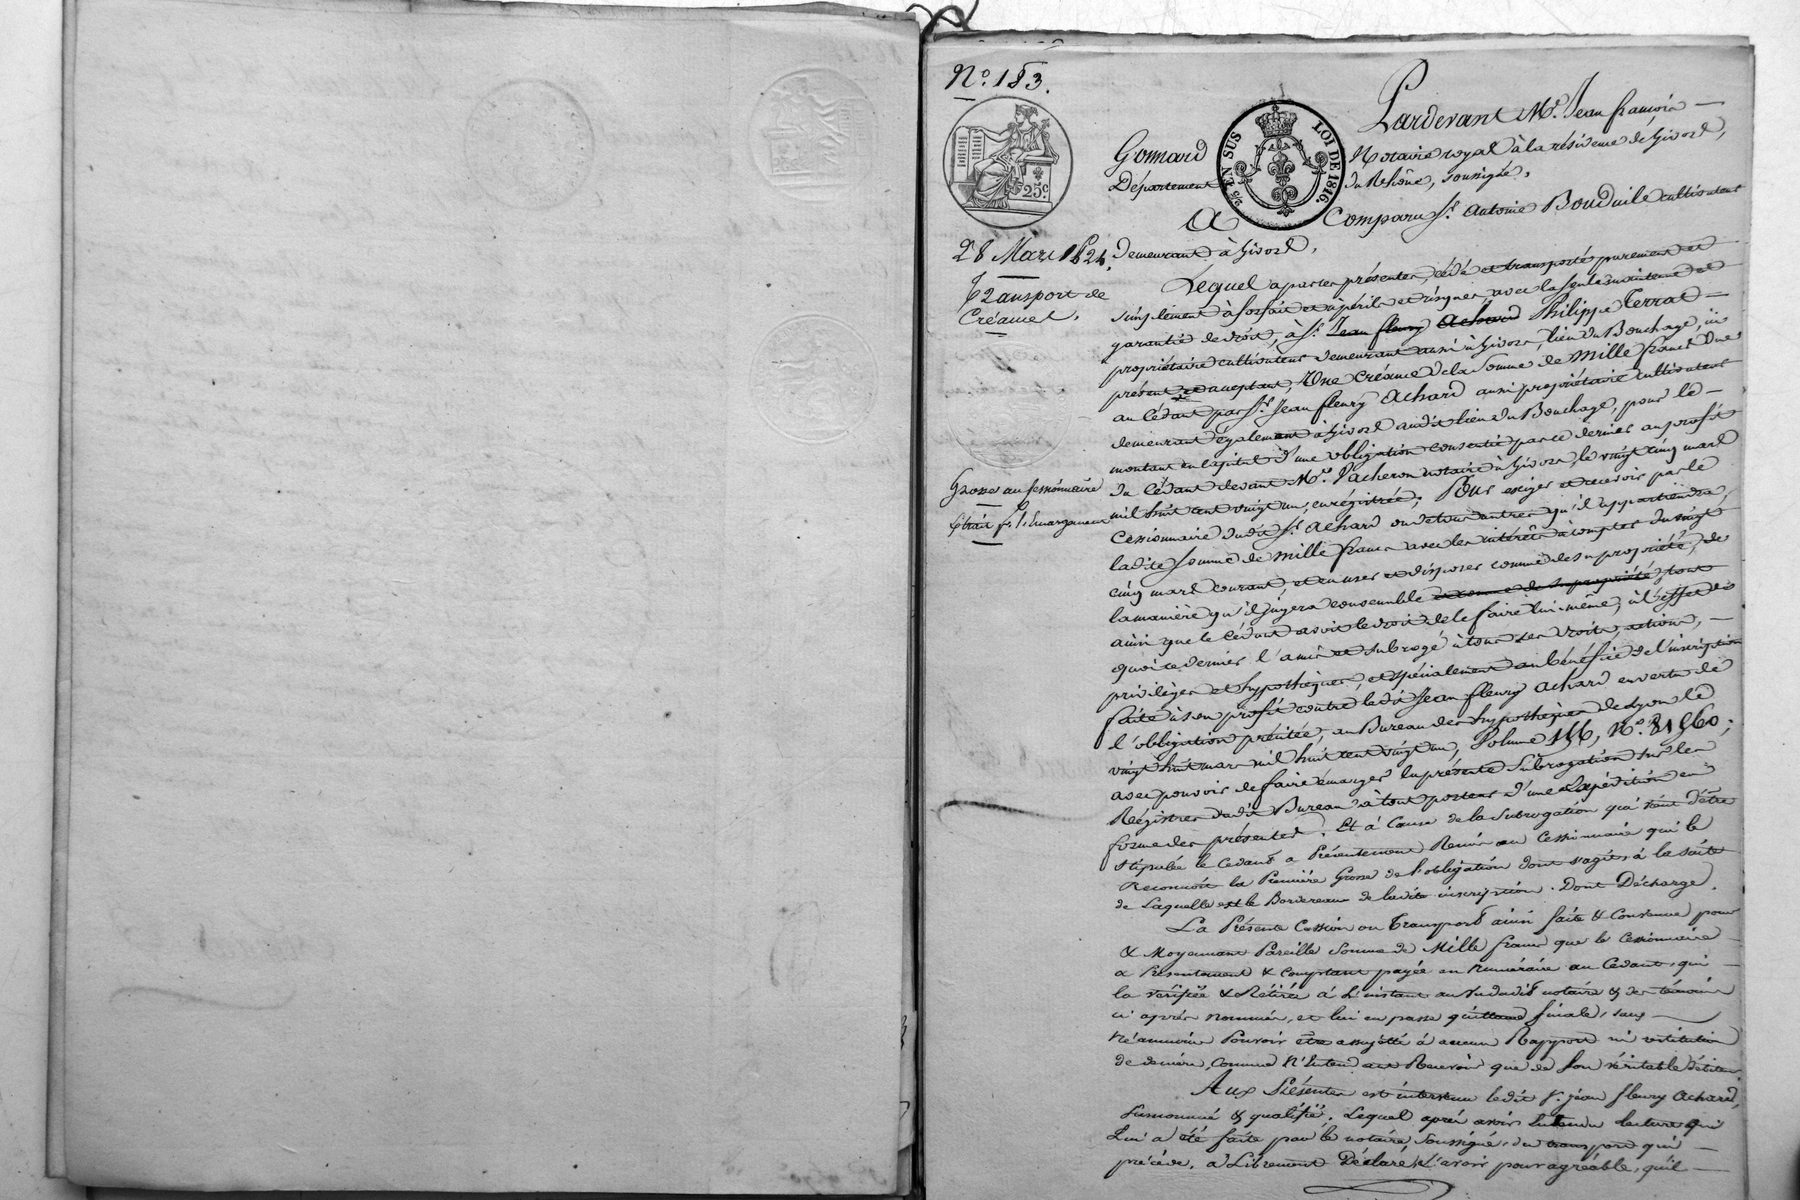 N.º 183.
25.c
EN SUS
LOI DE 1816.
28 Mars 1824.
Transport de
Créance.
Grosse au cessionnaire
Extrait p.r l'émargement
Pardevant M.e Jean françois
Gonnard Notaire royal à la résidence de Givors,
Département du Rhône, soussigné,
A Comparu S.r Antoine Bonduile cultivateur
demeurant à Givors,
Lequel a par ces présentes, cédé et transporté purement et
simplement à forfait et à périls et risques avec la seule maintenue et
garantie de droit, à S.r Jean fleury Achard Philippe Terrat
propriétaire cultivateur demeurant aussi à Givors, lieu du Bouchage, ici
présent et acceptant, Une Créance de la Somme de Mille francs due
au Cédant par S.r Jean fleury Achard aussi propriétaire cultivateur
demeurant également à Givors audit lieu du Bouchage, pour le
montant en Capital d'une obligation consentie par ce dernier au profit
du Cédant devant M.e Vacheron notaire à Givors, le vingt cinq mars
mil huit cent vingt un, enregistrée; Pour exiger et recevoir par le
Cessionnaire dudit S.r Achard ou de tous autres qu'il appartiendra,
ladite Somme de Mille francs avec les intérêts à compter du vingt
cinq mars courant, et en user et disposer comme de sa propriété, de
la manière qu'il jugera convenable et comme de sa propriété, tout
ainsi que le Cédant avoit le droit de le faire lui-même, à l'effet de
quoi ce dernier l'a mis et subrogé à tous ses droits, actions,
privilèges et hypothèques, et spécialement au bénéfice de l'inscription
faite à son profit contre ledit Jean fleury Achard en vertu de
l'obligation précitée, au Bureau des hypothèques de Lyon le
vingt huit mars mil huit cent vingt un, Volume 156, N.º 81560;
avec pouvoir de faire émarger la présente Subrogation sur les
Régistres dudit Bureau à tout porteur d'une Expédition en
forme des présentes. Et à Cause de la Subrogation qui vient d'être
Stipulée le Cédant a Présentement Remis au Cessionnaire qui le
Reconnoit la Première Grosse de l'obligation dont s'agit, à la suite
de Laquelle est le Bordereau de ladite inscription. Dont Décharge.
La Présente Cession ou Transport ainsi faite & Convenue pour
& Moyennant Pareille Somme de Mille francs que le Cessionnaire
a Présentement & comptant payée en Numéraire au Cédant, qui
la vérifiée & Retirée à L'instant au vu dudit notaire & des témoins
ci après nommés, et lui en passe quittance finale, sans
Néanmoins Pouvoir être assujetté à aucun Rapport ni restitution
de deniers, Comme N'Entend Recevoir que de son véritable Débiteur.
Aux Présentes est intervenu ledit S.r jean fleury Achard,
Surnommé & qualifié, Lequel après avoir Entendu lecture qui
Lui a été faite par le notaire Soussigné, du transport qui
précède, a Librement Déclaré L'avoir pour agréable, qu'il